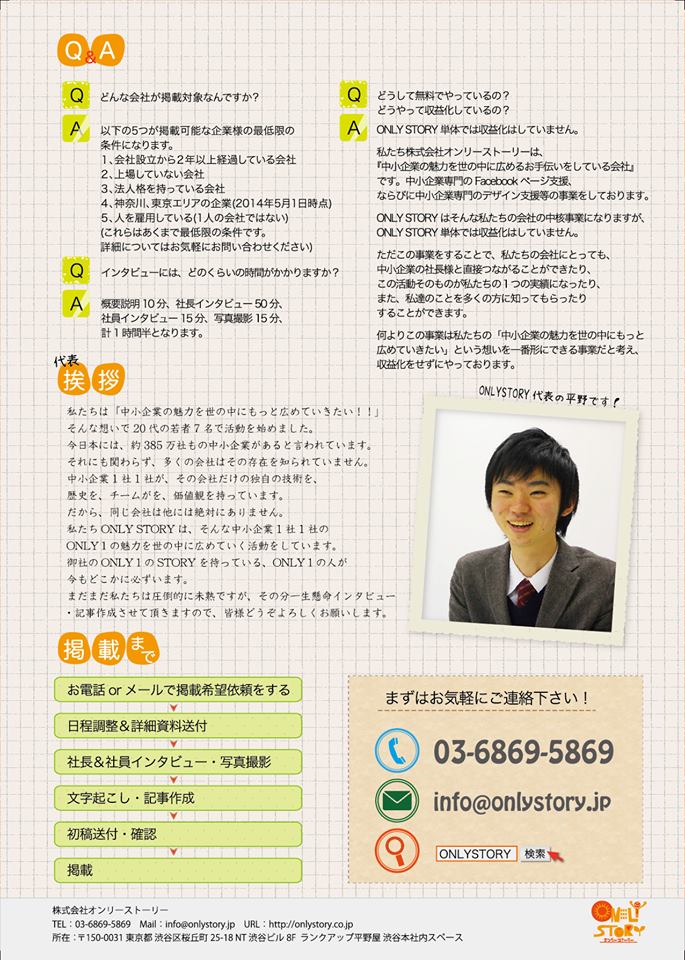 Q&A
Q どんな会社が掲載対象なんですか?
A 以下の5つが掲載可能な企業様の最低限の
条件になります。
1、会社設立から2年以上経過している会社
2、上場していない会社
3、法人格を持っている会社
4、神奈川、東京エリアの企業(2014年5月1日時点)
5、人を雇用している(1人の会社ではない)
(これらはあくまで最低限の条件です。
詳細についてはお気軽にお問い合わせください)
Q インタビューには、どのくらいの時間がかかりますか?
A 概要説明10分、社長インタビュー50分、
社員インタビュー15分、写真撮影15分、
計1時間半となります。
Q どうして無料でやっているの?
どうやって収益化しているの?
A ONLY STORY 単体では収益化はしていません。
私たち株式会社オンリーストーリーは、
『中小企業の魅力を世の中に広めるお手伝いをしている会社』
です。中小企業専門の Facebook ページ支援、
ならびに中小企業専門のデザイン支援等の事業をしております。
ONLY STORY はそんな私たちの会社の中核事業になりますが、
ONLY STORY 単体では収益化はしていません。
ただこの事業をすることで、私たちの会社にとっても、
中小企業の社長様と直接つながることができたり、
この活動そのものが私たちの1つの実績になったり、
また、私達のことを多くの方に知ってもらったり
することができます。
何よりこの事業は私たちの「中小企業の魅力を世の中にもっと
広めていきたい」という想いを一番形にできる事業だと考え、
収益化をせずにやっております。
代表
挨拶
私たちは「中小企業の魅力を世の中にもっと広めていきたい!!」
そんな想いで20代の若者7名で活動を始めました。
今日本には、約385万社もの中小企業があると言われています。
それにも関わらず、多くの会社はその存在を知られていません。
中小企業1社1社が、その会社だけの独自の技術を、
歴史を、チームがを、価値観を持っています。
だから、同じ会社は他には絶対にありません。
私たち ONLY STORY は、そんな中小企業1社1社の
ONLY1の魅力を世の中に広めていく活動をしています。
御社の ONLY1の STORY を待っている、ONLY1の人が
今もどこかに必ずいます。
まだまだ私たちは圧倒的に未熟ですが、その分一生懸命インタビュー
・記事作成させて頂きますので、皆様どうぞよろしくお願いします。
ONLYSTORY 代表の平野です!
掲載まで
お電話 or メールで掲載希望依頼をする
日程調整&詳細資料送付
社長&社員インタビュー・写真撮影
文字起こし・記事作成
初稿送付・確認
掲載
まずはお気軽にご連絡下さい!
03-6869-5869
info@onlystory.jp
ONLYSTORY 検索
株式会社オンリーストーリー
TEL:03-6869-5869 Mail:info@onlystory.jp URL:http://onlystory.co.jp
所在:〒150-0031 東京都 渋谷区桜丘町 25-18 NT 渋谷ビル 8F ランクアップ平野屋 渋谷本社内スペース
ONLY
STORY
オンリーストーリー